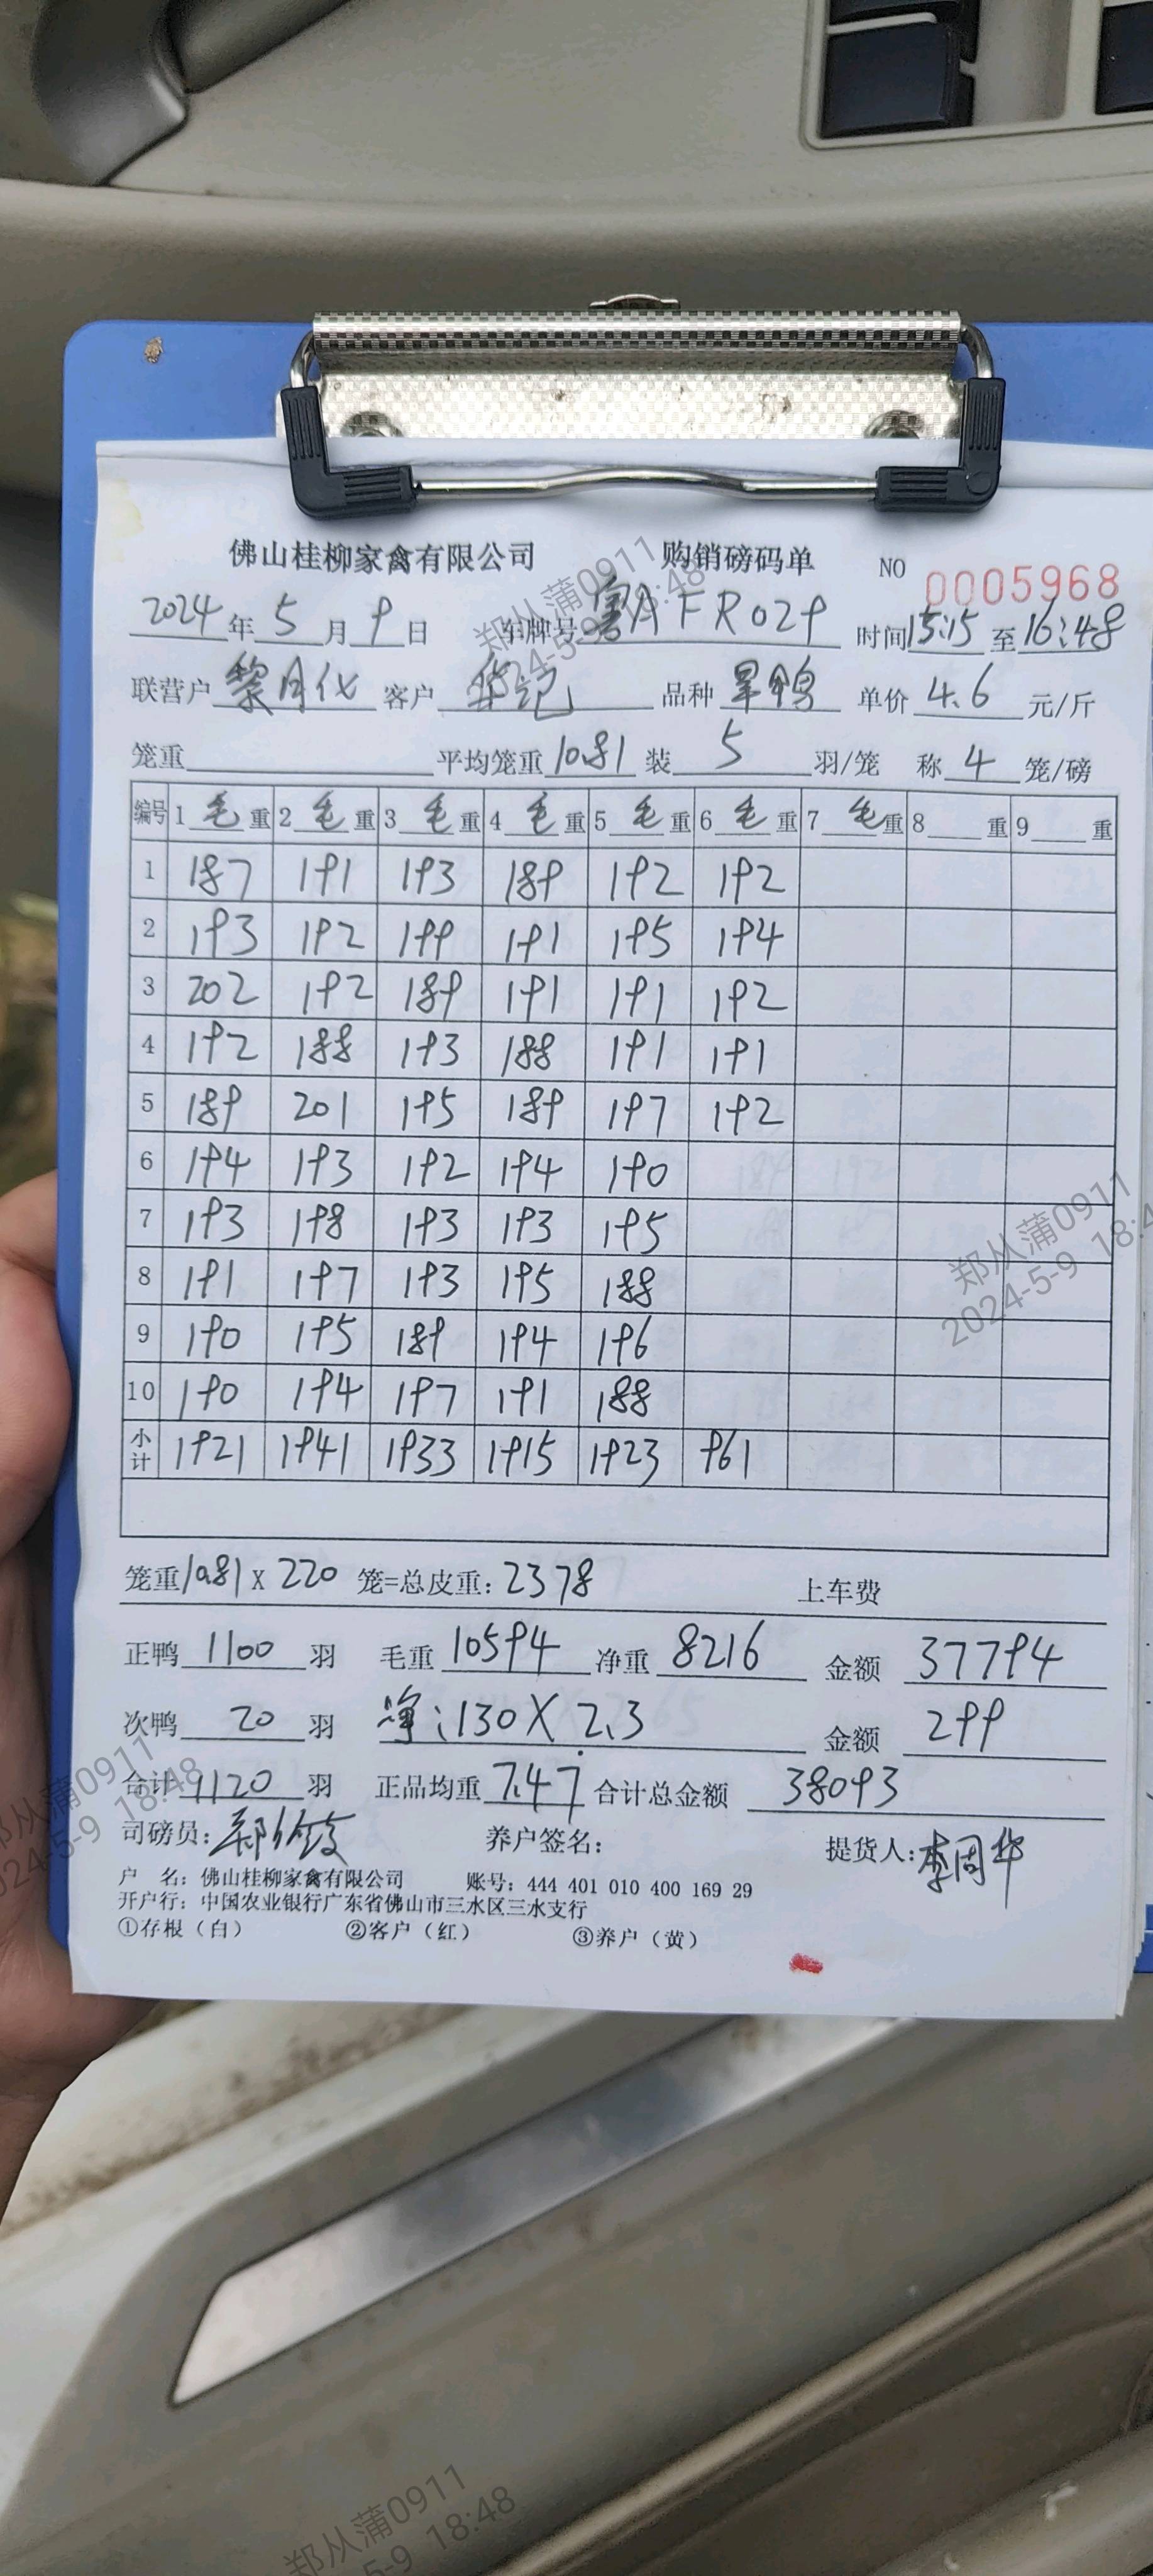 佛山桂柳家禽有限公司 购销磅码单 NO 0005968
2024年5月9日 车牌号粤AFR029 时间15:15至16:48
联营户黎月代 客户华记 品种旱鸭 单价4.6元/斤
笼重 平均笼重10.81装5羽/笼 称4笼/磅
编号 1毛重 2毛重 3毛重 4毛重 5毛重 6毛重 7毛重 8重 9重
1 187 191 193 189 192 192
2 193 192 199 191 195 194
3 202 192 189 191 191 192
4 192 188 193 188 191 191
5 189 201 195 189 197 192
6 194 193 192 194 190
7 193 198 193 193 195
8 191 197 193 195 188
9 190 195 189 194 196
10 190 194 197 191 188
小计 1921 1941 1933 1915 1923 961
笼重10.81X220笼=总皮重:2378 上车费
正鸭1100羽 毛重10594净重8216 金额37794
次鸭20羽 净:130X2.3 金额299
合计1120羽 正品均重7.47合计总金额38093
司磅员: 养户签名: 提货人:李周华
户 名:佛山桂柳家禽有限公司 账号:444 401 010 400 169 29
开户行:中国农业银行广东省佛山市三水区三水支行
①存根(白) ②客户(红) ③养户(黄)
郑从蒲0911
2024-5-9 18:48
郑从蒲0911
2024-5-9 18:4
从蒲0911
24-5-9 18:48
郑从蒲0911
5-9 18:48